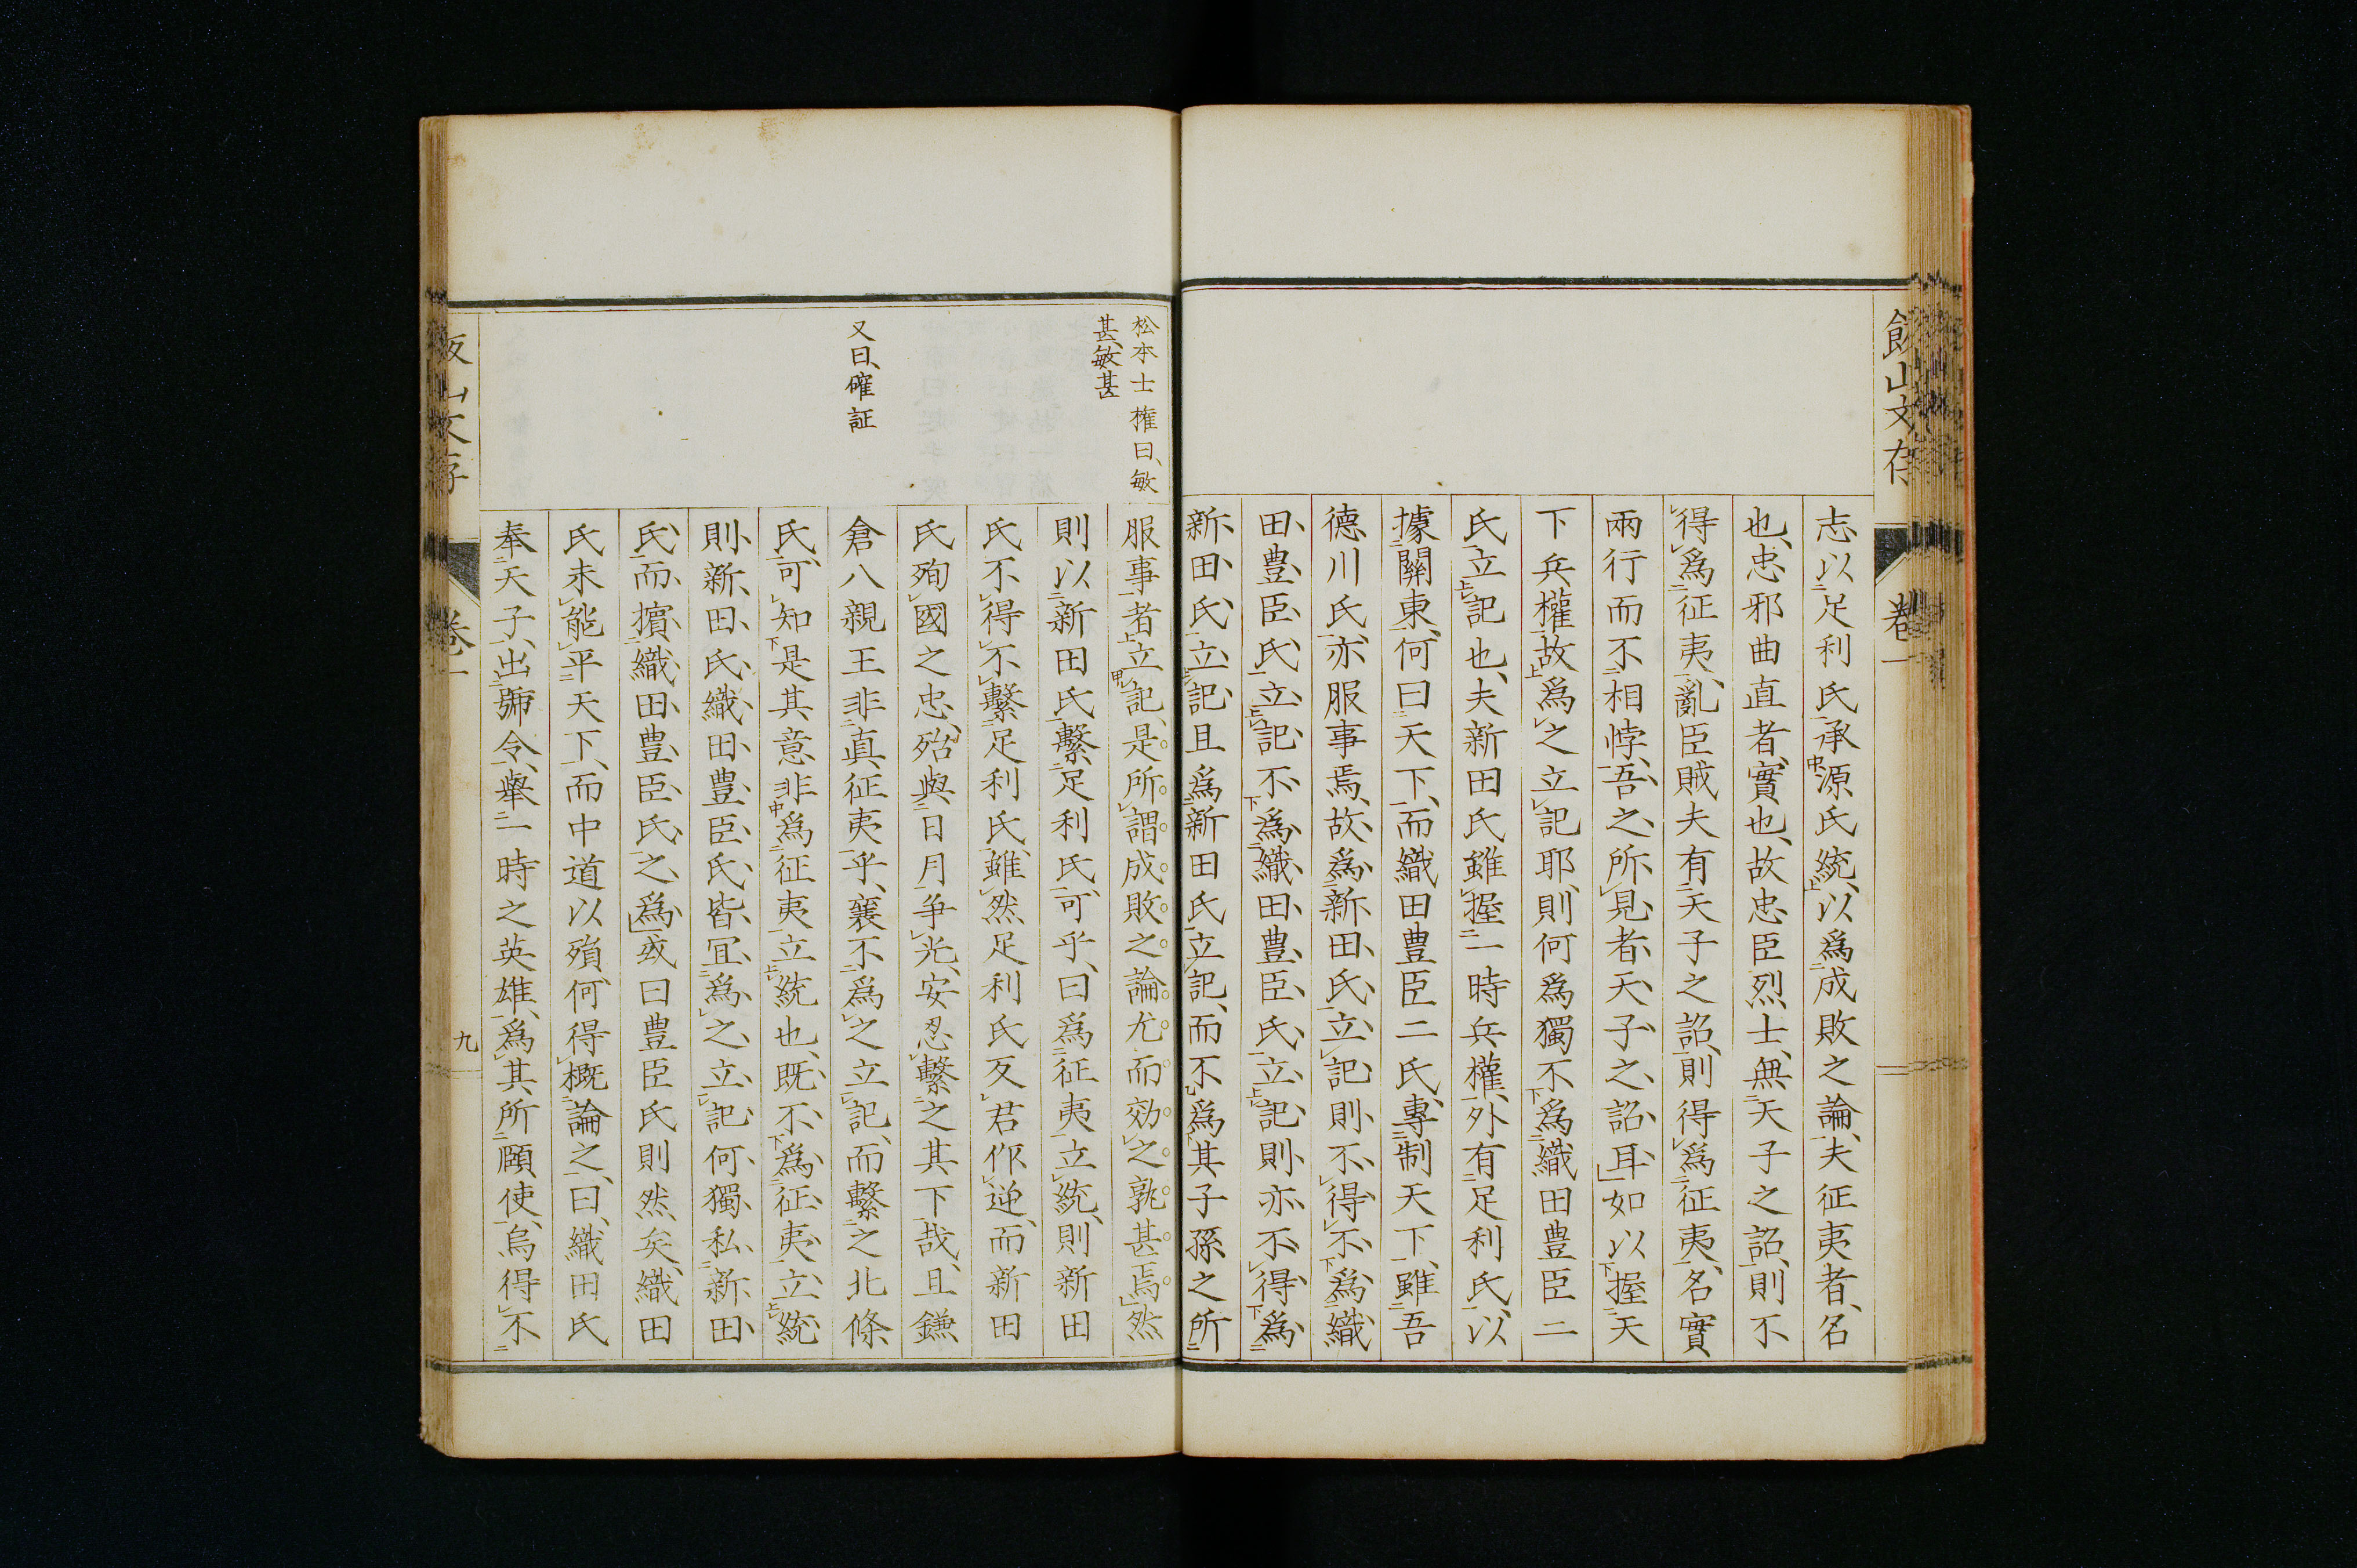 飯山文存
卷一
志以足利氏承源氏統以爲成敗之論夫征夷者、名
也、忠邪曲直者、實也、故忠臣烈士、無天子之詔、則不
得爲征夷、亂臣賊夫有天子之詔、則得爲征夷、名實
兩行而不相悖、吾之所見者、天子之詔耳、如以握天
下兵權故爲之立記耶、則何爲獨不爲織田豊臣二
氏立記也、夫新田氏雖握一時兵權、外有足利氏、以
據關東、何曰天下、而織田豊臣二氏、專制天下、雖吾
德川氏、亦服事焉、故爲新田氏立記、則不得不爲織
田豊臣氏立記、不爲織田豊臣氏立記、則亦不得爲
新田氏立記、且爲新田氏立記、而不爲其子孫之所
松本士權曰、敏
甚、敏甚
服事者立記、是所謂成敗之論尤而効之孰甚焉、然
則以新田氏繫足利氏、可乎、曰爲征夷立統、則新田
氏不得不繫足利氏、雖然足利氏反君作逆、而新田
氏殉國之忠、殆與日月爭光、安忍繫之其下哉、且鎌
又曰、確証
倉八親王非真征夷乎、襄不爲之立記、而繫之北條
氏、可知是其意非爲征夷立統也、既不爲征夷立統
則新田氏織田豊臣氏、皆宜爲之立記、何獨私新田
氏、而擯織田豊臣氏之爲、或曰豊臣氏則然矣、織田
氏未能平天下、而中道以殞、何得概論之、曰、織田氏
奉天子、出號令、舉一時之英雄、爲其所頤使、烏得不
飯山文存
卷一
九